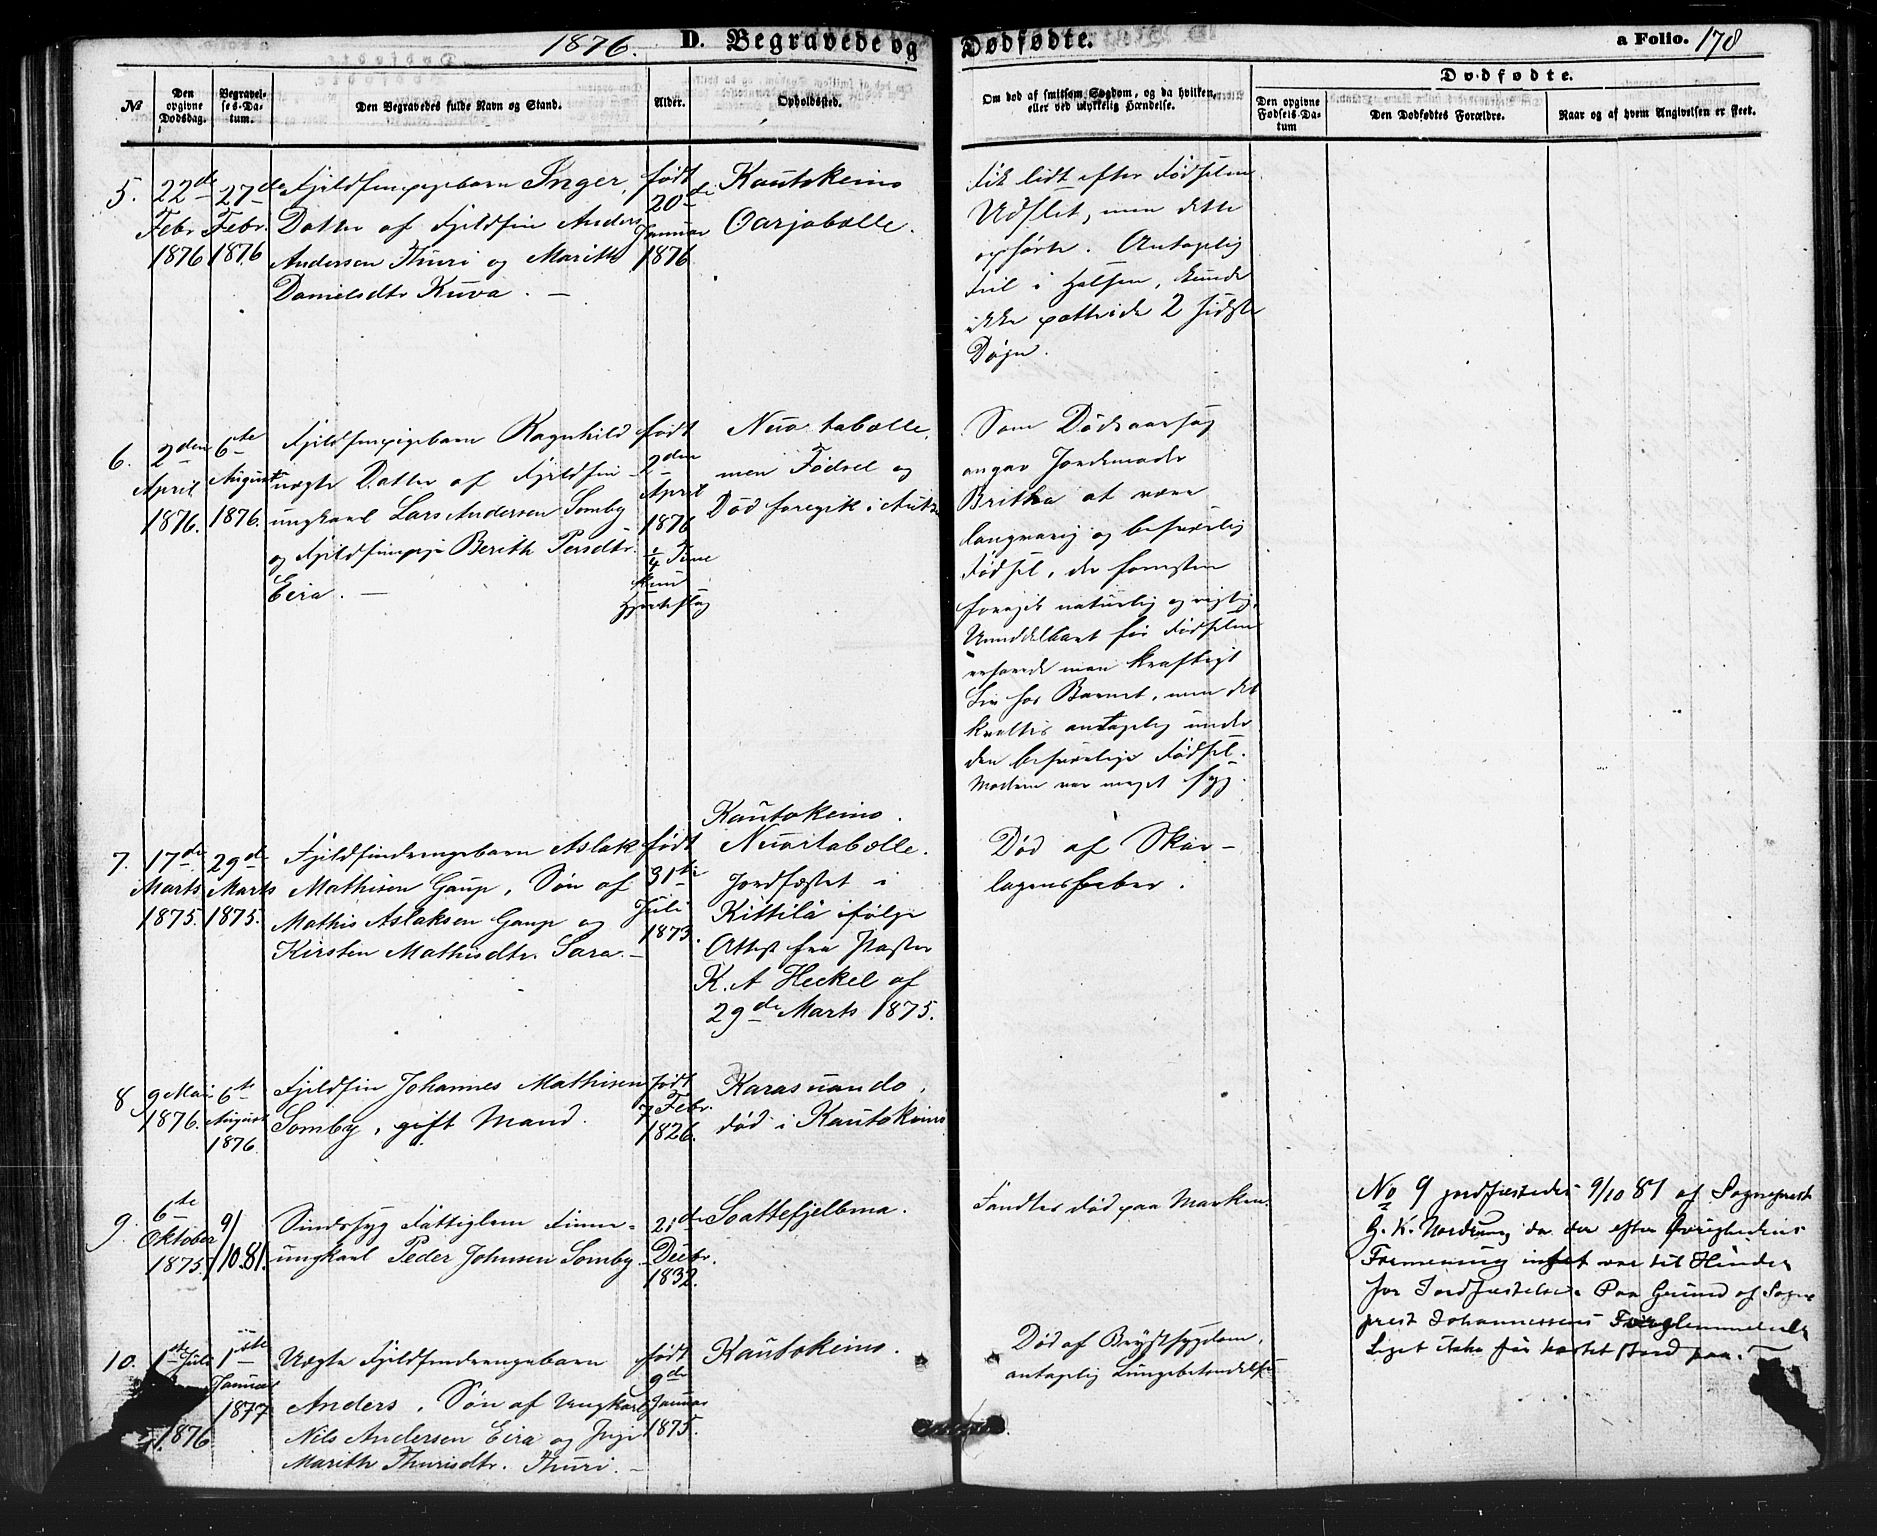 1876. D. Begravede og Dødfødte. a Folio. 178
No
Den opgivne Dødsdag.
Begravelses-Datum.
Den Begravedes fulde Navn og Stand.
Alder.
Opholdssted.
Om død af smitsom Sygdom, og da hvilken, eller ved ulykkelig Hændelse.
Dødfødte.
Den opgivne Fødsels-Datum
Den Dødfødtes Forældre.
Naar og af hvem Angivelsen er skeet.
5.
22de
Febr
1876
27de
Febr.
1876
Fjeldfinpigebarn Inger,
Datter af Fjeldfin Anders
Andersen Thuri og Marith
Danielsdtr Kuva. —
født
20de
Januar
1876
Kautokeino
Oarjabælle.
Fik lidt efter Fødselen
Udslet, men dette
ophørte. Antagelig
Feil i Halsen, kunde
ikke patte i de 2 sidste
Døgn.
6.
2den
April
1876.
6te
August
1876.
Fjeldfinpigebarn Ragnhild
uægte Datter af Fjeldfin
ungkarl Lars Andersen Somby
og Fjeldfinpige Berith Persdtr.
Eira. —
født
2den
April
1876
1/4 Time
Hjerteslag
Nuortabælle,
men Fødsel og
Død foregik i
Som Dødsaarsag
angav Jordemoder
Britha at være
langvarig og besværlig
Fødsel, der foresten
foregik naturlig og rigtig.
Umiddelbart før Fødselen
erfarede man kraftigt
Liv hos Barnet, men det
kvaltes antagelig under
den besværlige Fødsel.
Moderen var meget syg.
7.
17de
Marts
1875.
29de
Marts
1875.
Fjeldfindrengebarn Aslak
Mathisen Gaup, Søn af
Mathis Aslaksen Gaup og
Kirsten Mathisdtr. Sara. —
født
31te
Juli
1873.
Kautokeino.
Nuortabælle.
Jordfæstet i
Kittilä ifølge
Attest fra Pastor
K. A Heckel af
29de Marts 1875.
Død af Skar-
lagensfeber.
8
9 Mai
1876.
6te
August
1876.
Fjeldfin Johannes Mathisen
Somby, gift Mand.
født
7 Febr.
1826.
Karasuando,
død i Kautokeino
9.
6te
Oktober
1875.
9/
10.81.
Sindssyg Fattiglem Finne-
ungkarl Peder Johnsen Somby.
21de
Decbr.
1832.
Soattefjelbma.
Fandtes død paa Marken.
No 9 jordfæstedes 9/10 81 af Sogneprest
G. K. Nordrum da der efter Øvrighedens
Formening intet var til Hinder
for Jordfæstelse. Paa Grund af Sogne
prest Johannessens Forglemmelse
Liget ikke før kastet Jord paa. —
10.
1ste Juli
1876
1ste
Januar
1877
Uægte Fjeldfindrengebarn
Anders, Søn af Ungkarl
Nils Andersen Eira og Pige
Marith Thurisdtr. Thuri. —
født
9de
Januar
1875.
Kautokeino.
Død af Brystsygdom,
antagelig Lungebetændelse